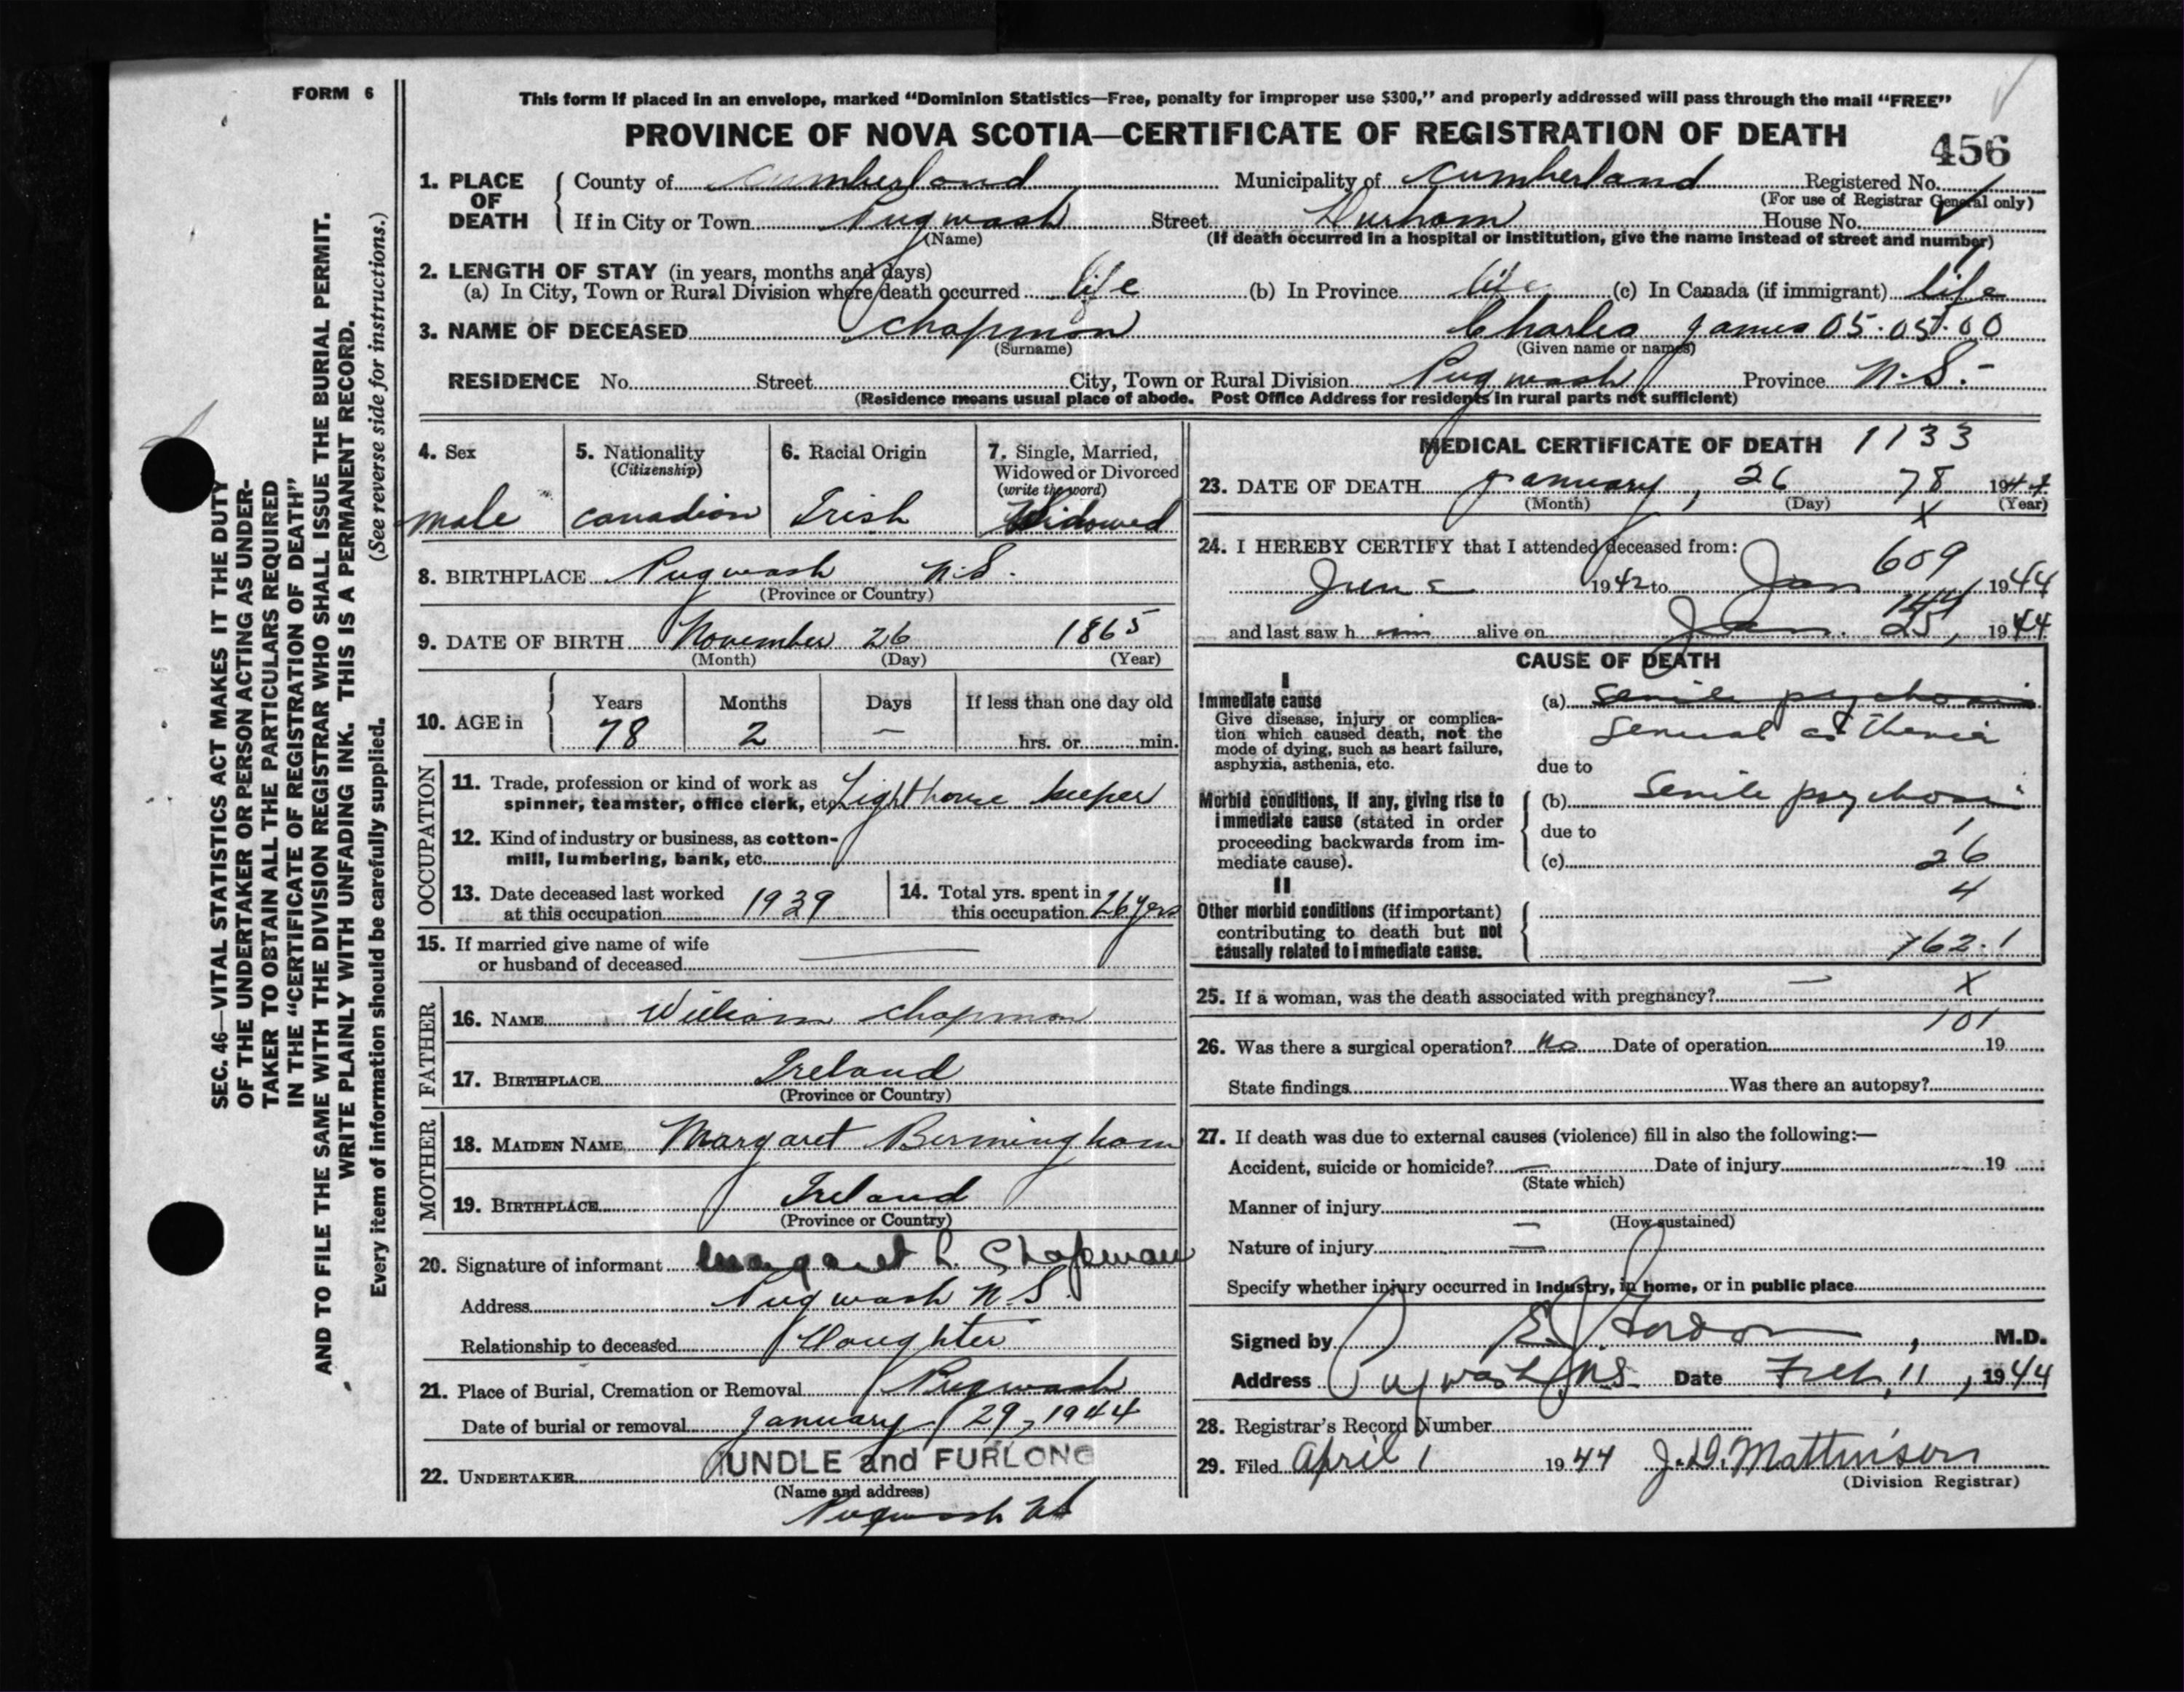 FORM 6
This form if placed in an envelope, marked “Dominion Statistics—Free, penalty for improper use $300,” and properly addressed will pass through the mail “FREE”
PROVINCE OF NOVA SCOTIA—CERTIFICATE OF REGISTRATION OF DEATH
456
SEC. 46—VITAL STATISTICS ACT MAKES IT THE DUTY
OF THE UNDERTAKER OR PERSON ACTING AS UNDER-
TAKER TO OBTAIN ALL THE PARTICULARS REQUIRED
IN THE “CERTIFICATE OF REGISTRATION OF DEATH”
AND TO FILE THE SAME WITH THE DIVISION REGISTRAR WHO SHALL ISSUE THE BURIAL PERMIT.
WRITE PLAINLY WITH UNFADING INK. THIS IS A PERMANENT RECORD.
Every item of information should be carefully supplied. (See reverse side for instructions.)
1. PLACE OF DEATH
County of Cumberland Municipality of Cumberland Registered No.
(For use of Registrar General only)
If in City or Town Pugwash Street Durham House No.
(Name) (If death occurred in a hospital or institution, give the name instead of street and number)
2. LENGTH OF STAY (in years, months and days)
(a) In City, Town or Rural Division where death occurred life (b) In Province life (c) In Canada (if immigrant) life
3. NAME OF DECEASED Chapman Charles James 05.05.00
(Surname) (Given name or names)
RESIDENCE No. Street City, Town or Rural Division Pugwash Province N.S.-
(Residence means usual place of abode. Post Office Address for residents in rural parts not sufficient)
4. Sex
male
5. Nationality
(Citizenship)
Canadian
6. Racial Origin
Irish
7. Single, Married,
Widowed or Divorced
(write the word)
Widowed
8. BIRTHPLACE Pugwash N.S.
(Province or Country)
9. DATE OF BIRTH November 26 1865
(Month) (Day) (Year)
10. AGE in
Years Months Days If less than one day old
78 2 — hrs. or min.
OCCUPATION
11. Trade, profession or kind of work as
spinner, teamster, office clerk, etc. Lighthouse keeper
12. Kind of industry or business, as cotton-
mill, lumbering, bank, etc.
13. Date deceased last worked
at this occupation 1939
14. Total yrs. spent in
this occupation 26 yers
15. If married give name of wife
or husband of deceased —
FATHER
16. NAME William Chapman
17. BIRTHPLACE Ireland
(Province or Country)
MOTHER
18. MAIDEN NAME Margaret Bermingham
19. BIRTHPLACE Ireland
(Province or Country)
20. Signature of informant Margaret L. Chapman
Address Pugwash N.S.
Relationship to deceased Daughter
21. Place of Burial, Cremation or Removal Pugwash
Date of burial or removal January 29, 1944
22. UNDERTAKER UNDLE and FURLONG
(Name and address)
Pugwash NS
MEDICAL CERTIFICATE OF DEATH 1133
23. DATE OF DEATH January, 26 78 1944
(Month) (Day) (Year)
X
24. I HEREBY CERTIFY that I attended deceased from:
609
June 1942 to Jan 1944
and last saw h im alive on Jan. 25, 1944
CAUSE OF DEATH
I
Immediate cause
Give disease, injury or complica-
tion which caused death, not the
mode of dying, such as heart failure,
asphyxia, asthenia, etc.
(a) Senile psychosis
General asthenia
due to
Morbid conditions, if any, giving rise to
immediate cause (stated in order
proceeding backwards from im-
mediate cause).
(b) Senile psychosis
due to 1
(c) 26
II 4
Other morbid conditions (if important)
contributing to death but not
causally related to immediate cause.
162.1
25. If a woman, was the death associated with pregnancy? — X
101
26. Was there a surgical operation? No Date of operation 19
State findings Was there an autopsy?
27. If death was due to external causes (violence) fill in also the following:—
Accident, suicide or homicide? — Date of injury 19
(State which)
Manner of injury
(How sustained)
Nature of injury —
Specify whether injury occurred in Industry, in home, or in public place
Signed by E. Gordon, M.D.
Address Pugwash, N.S. Date Feb. 11, 1944
28. Registrar’s Record Number
29. Filed April 1 1944 J.D. Mattinson
(Division Registrar)